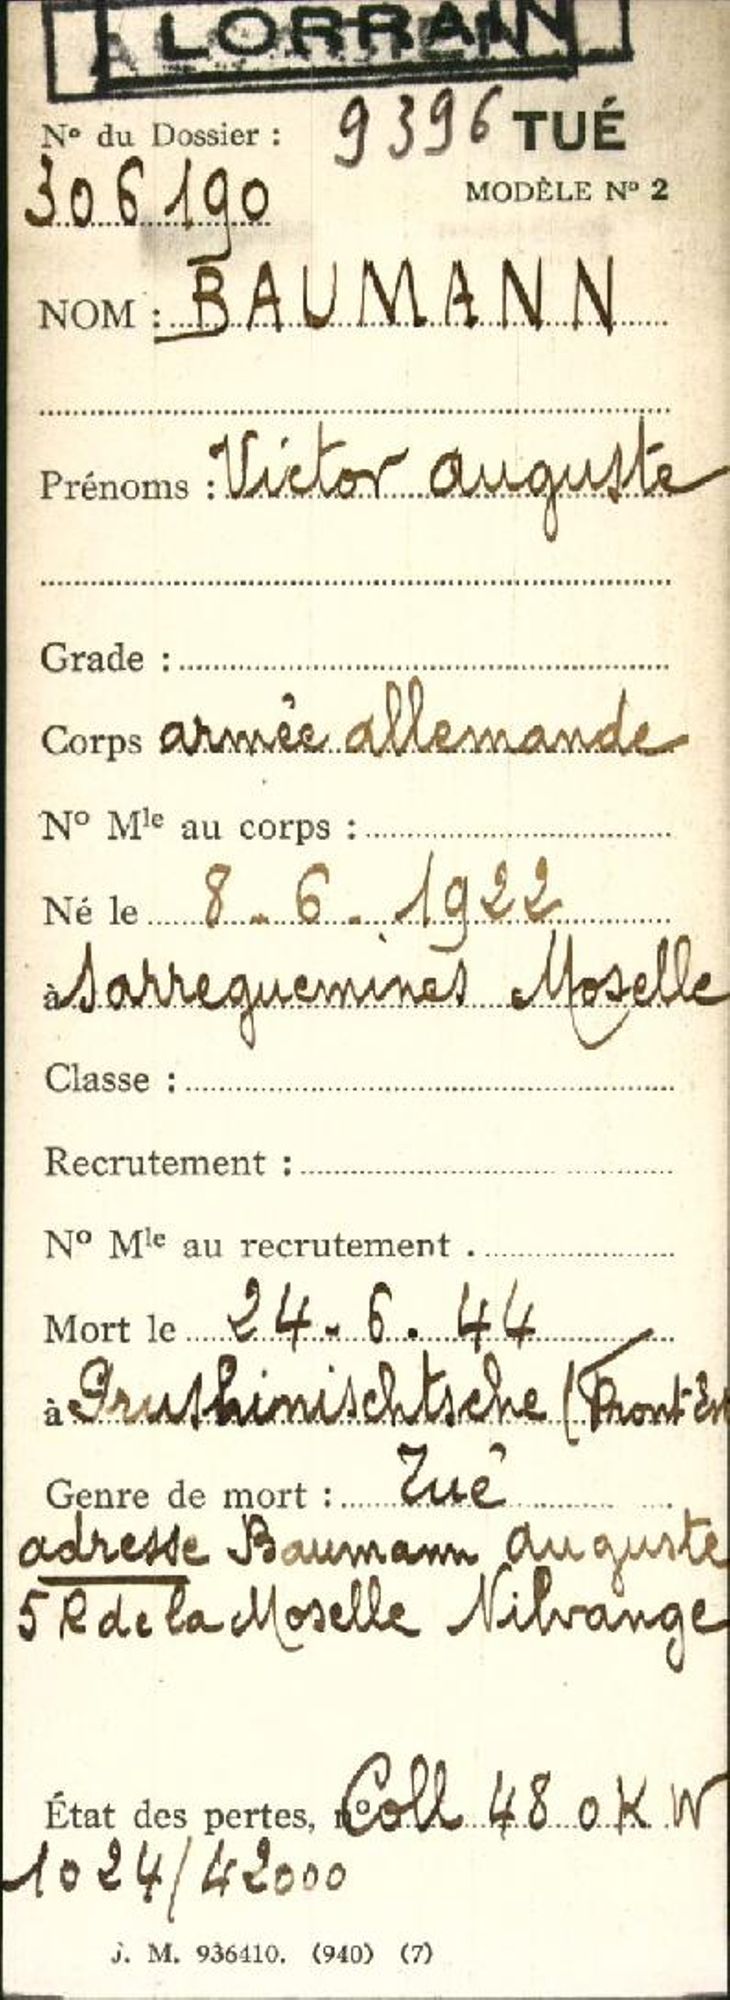 LORRAIN
N° du Dossier : 9396 TUÉ
306190
MODÈLE N° 2
NOM : BAUMANN
Prénoms : Victor Auguste
Grade :
Corps armée allemande
N° Mle au corps :
Né le 8-6-1922
à Sarreguemines Moselle
Classe :
Recrutement :
N° Mle au recrutement .
Mort le 24.6.44
à Prushinischtsche (Front Est
Genre de mort : Tué
adresse Baumann Auguste
5 R de la Moselle Nilvange
État des pertes, n° Coll 48 OKW
1024/42000
J. M. 936410. (940) (7)